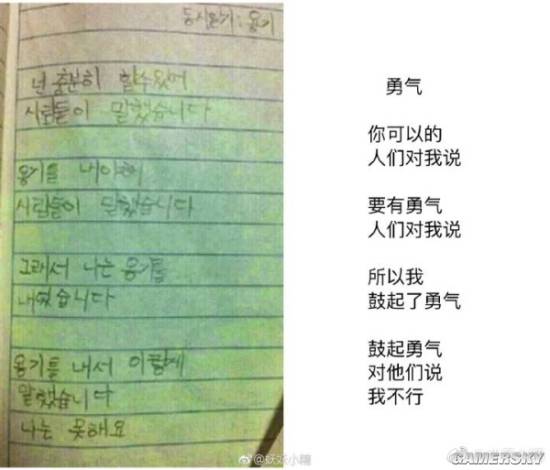 동시쓰기 : 용기
넌 충분히 할수있어
사람들이 말했습니다
용기를 내야해
사람들이 말했습니다
그래서 나는 용기를
내었습니다
용기를 내서 이렇게
말했습니다
나는 못해요
勇气
你可以的
人们对我说
要有勇气
人们对我说
所以我
鼓起了勇气
鼓起勇气
对他们说
我不行
@妖妖小精
GAMERSKY